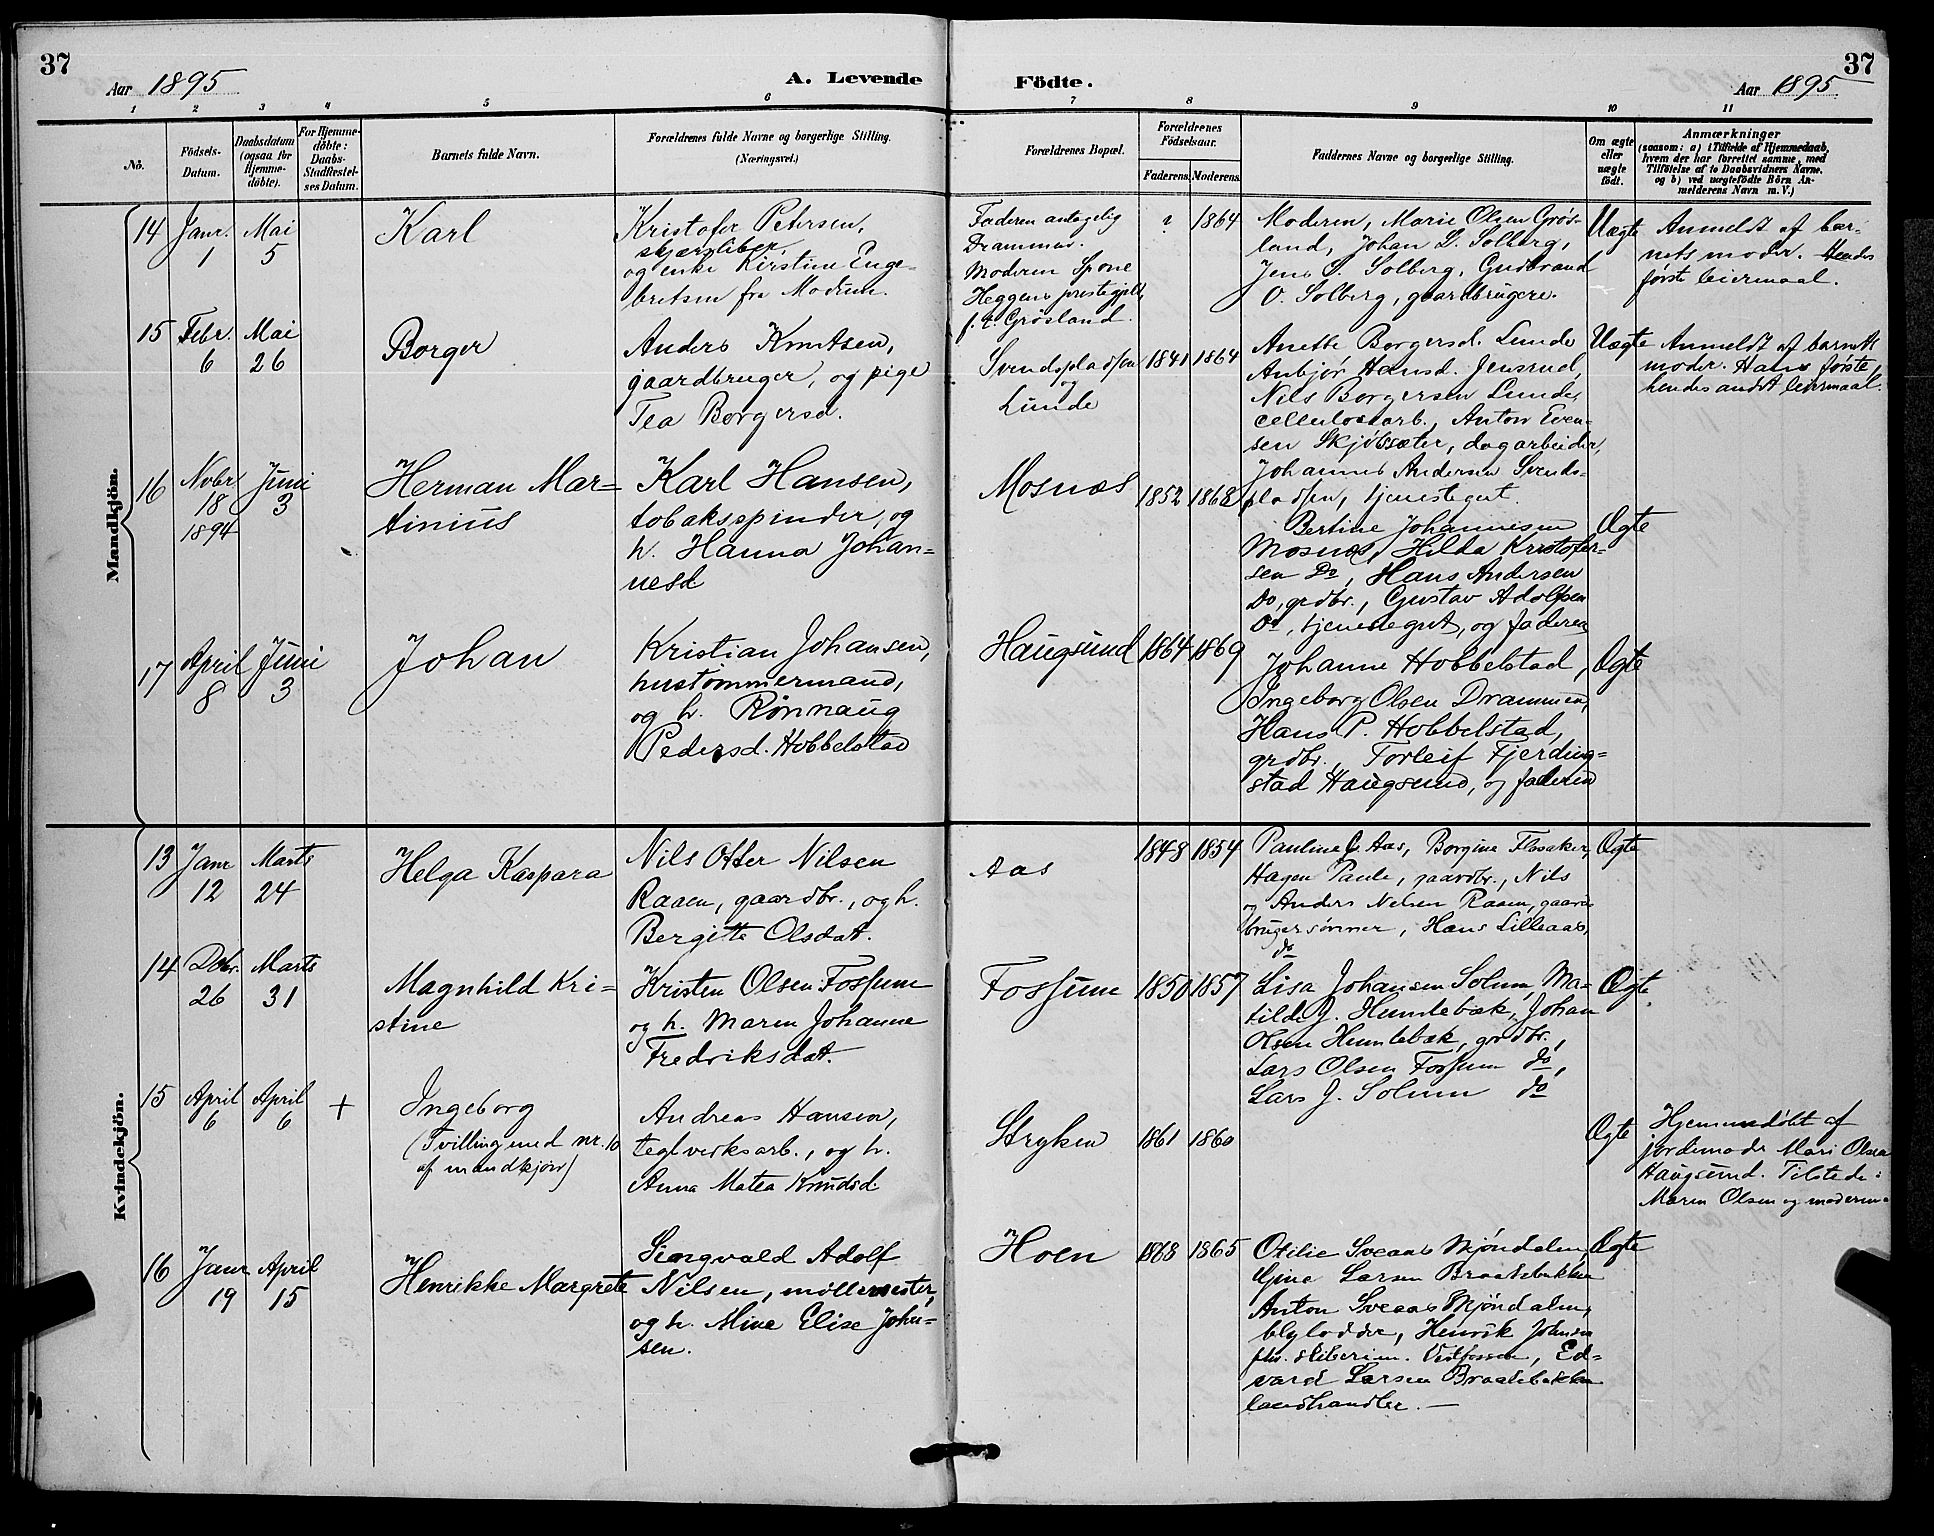 37
Aar 1895
A. Levende
Födte.
Aar 1895
37
1 2 3 4 5 6 7 8 9 10 11
No.
Födsels-
Datum.
Daabsdatum
(ogsaa for
Hjemme-
døbte).
For Hjemme-
døbte:
Daabs-
Stadfæstel-
ses Datum.
Barnets fulde Navn.
Forældrenes fulde Navne og borgerlige Stilling.
(Næringsvei.)
Forældrenes Bopæl.
Forældrenes
Födselsaar.
Faderens. Moderens.
Faddernes Navne og borgerlige Stilling.
Om ægte
eller
uægte
født.
Anmærkninger
(saasom: a) i Tilfælde af Hjemmedaab,
hvem der har forrettet samme, med
Tilföielse af to Daabsvidners Navne,
og b) ved uægtefödte Börn An-
melderens Navn m. V.)
Mandkjön.
14
Janr.
1
Mai
5
Karl
Kristofer Petersen,
og enke Kirstine Enge-
bretsen fra Modum.
Faderen antagelig
Drammen.
Moderen Spone
Heggens prestegjeld,
f. t. Grøsland.
?
1864
Moderen, Marie Olsen Grøs-
land, Johan L. Solberg,
Jens S. Solberg, Gudbrand
O. Solberg, gaardbrugere.
Uægte
Anmeldt af bar-
nets moder. Hendes
første leiermaal.
15
Febr.
6
Mai
26
Borger
Anders Knutsen,
gaardbruger, og pige
Tea Borgersd.
Svendspladsen
og
Lunde
1841
1864
Anette Borgersd. Lunde
Anbjør Hansd. Jensrud,
Nils Borgersen Lunde,
cellulosearb., Anton Even-
sen Skjøssæter, dagarbeider,
Johannes Andersen Svends-
pladsen, tjenestegut.
Uægte
Anmeldt af barnets
moder. Hans første,
hendes andet leiermaal.
16
Novbr
18
1894
Juni
3
Herman Mar-
tinius
Karl Hansen,
tobaksspinder, og
h. Hanna Johan-
nesd
Mosnæs
1852
1868
Bertine Johannesen
Mosnæs, Hilda Kristofer-
sen Do, Hans Andersen
Do, grdbr., Gustav Adolfsen
Do, tjenestegut, og faderen
Ægte
17
April
8
Juni
3
Johan
Kristian Johansen,
hustømmermand,
og h. Rønnaug
Pedersd. Hobbelstad
Haugsund
1864
1869
Johanne Hobbelstad,
Ingeborg Olsen Drammen,
Hans P. Hobbelstad,
grdbr., Torleif Fjerding-
stad Haugsund, og faderen
Ægte
Kvindekjön.
13
Janr
12
Marts
24
Helga Kaspara
Nils Otter Nilsen
Raaen, gaardbr., og h.
Bergitte Olsdat.
Aas
1848
1854
Pauline J. Aas, Borgine Flesaker,
Hagen Paule, gaardbr., Nils
og Anders Nelsen Raaen, gaard-
brugersønner, Hans Lilleaas,
do
Ægte
14
Debr.
26
Marts
31
Magnhild Kri-
stine
Kristen Olsen Fossum
og h. Maren Johanne
Fredriksdat.
Fossum
1850
1857
Lisa Johansen Solum, Ma-
tilde J. Humlebæk, Johan
Olsen Humlebæk, grdbr.,
Lars Olsen Fossum do,
Lars J. Solum do
Ægte
15
April
6
April
6
+
Ingeborg
(Tvilling med nr. 10
af mandkjøn)
Andreas Hansen,
teglverksarb., og h.
Anna Matea Knudsd.
Stryken
1861
1860
Ægte
Hjemmedøbt af
jordemoder Mari Olsen
Haugsund. Tilstede:
Maren Olsen og moderen
16
Janr
19
April
15
Henrikke Margrete
Sigvald Adolf
Nilsen, møllemester,
og h. Mina Elise John-
sen.
Hoen
1868
1865
Otilie Sveaas Mjøndalen,
Gina Larsen Braatebakken
Anton Sveaas Mjøndalen,
blylodder, Henrik Johnsen
Vestfossen, Ed-
vard Larsen Braatebakken
landhandler. —
Ægte